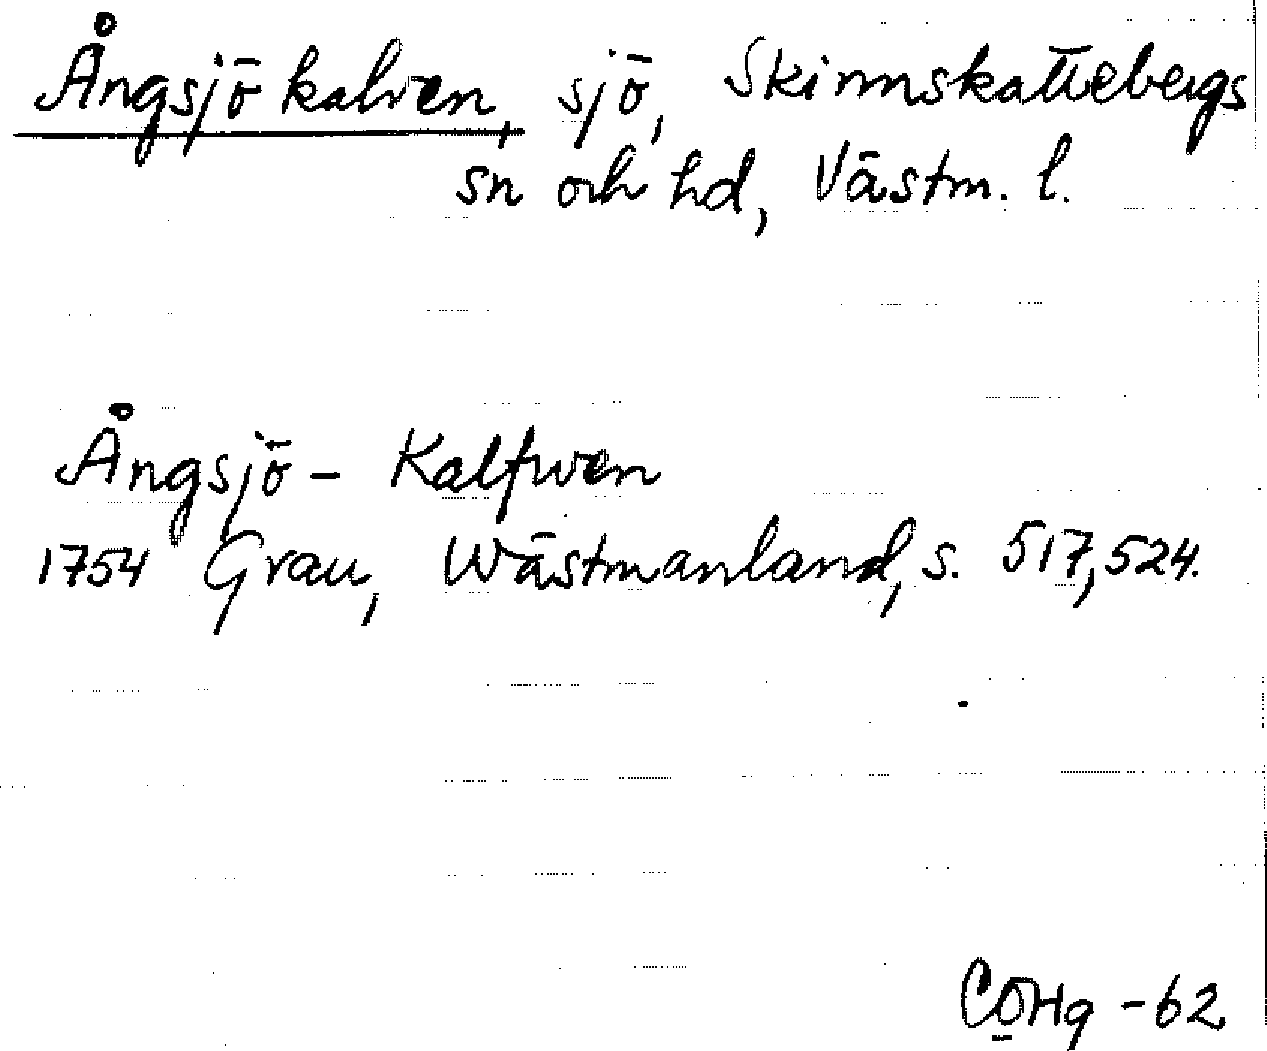 Ångsjökalven, sjö, Skinnskattebergs
sn och hd, Västm. l.
Ångsjö - Kalfwen
1754 Grau, Wästmanland, s. 517, 524.
CÖHg - 62